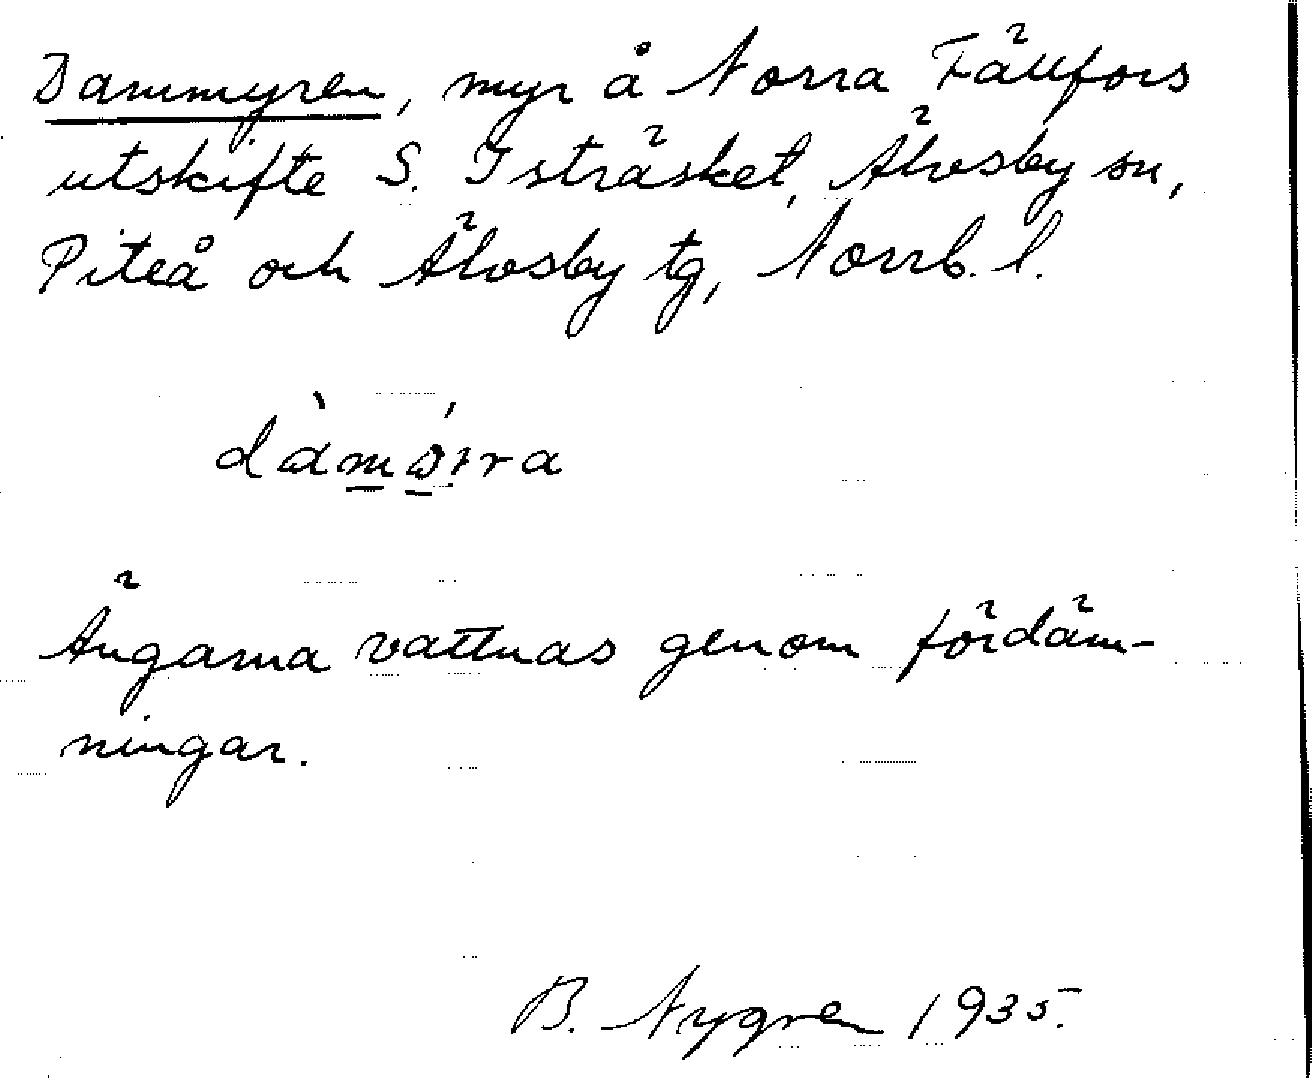 Dammyren, myr å Norra Fällfors
utskifte S. Isträsket, Älvsby sn,
Piteå och Älvsby tg, Norrb. l.
Ängarna vattnas genom fördäm-
ningar.
B. Nygren 1935.